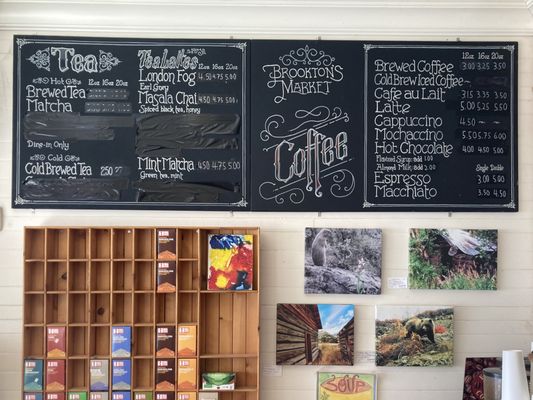 Tea
Hot
12oz 16oz 20oz
Brewed Tea
Matcha
Dine-in Only
Cold
Cold Brewed Tea 250
Tea Lattes 12oz 16oz 20oz
London Fog 4.50 4.75 5.00
Earl Grey
Masala Chai 4.50 4.75 5.00
Spiced black tea, honey
Mint Matcha 4.50 4.75 5.00
Green tea, mint
Brookton's
Market
Coffee
12oz 16oz 20oz
Brewed Coffee 3.00 3.25 3.50
Cold Brew Iced Coffee
Cafe au Lait 3.15 3.35 3.50
Latte 5.00 5.25 5.50
Cappuccino 4.50
Mochaccino 5.50 5.75 6.00
Hot Chocolate 4.00 4.50 5.00
Flavored Syrup add 1.00
Almond Milk add 2.00
Single Double
Espresso 3.00 5.00
Macchiato 3.50 4.50
SOUP